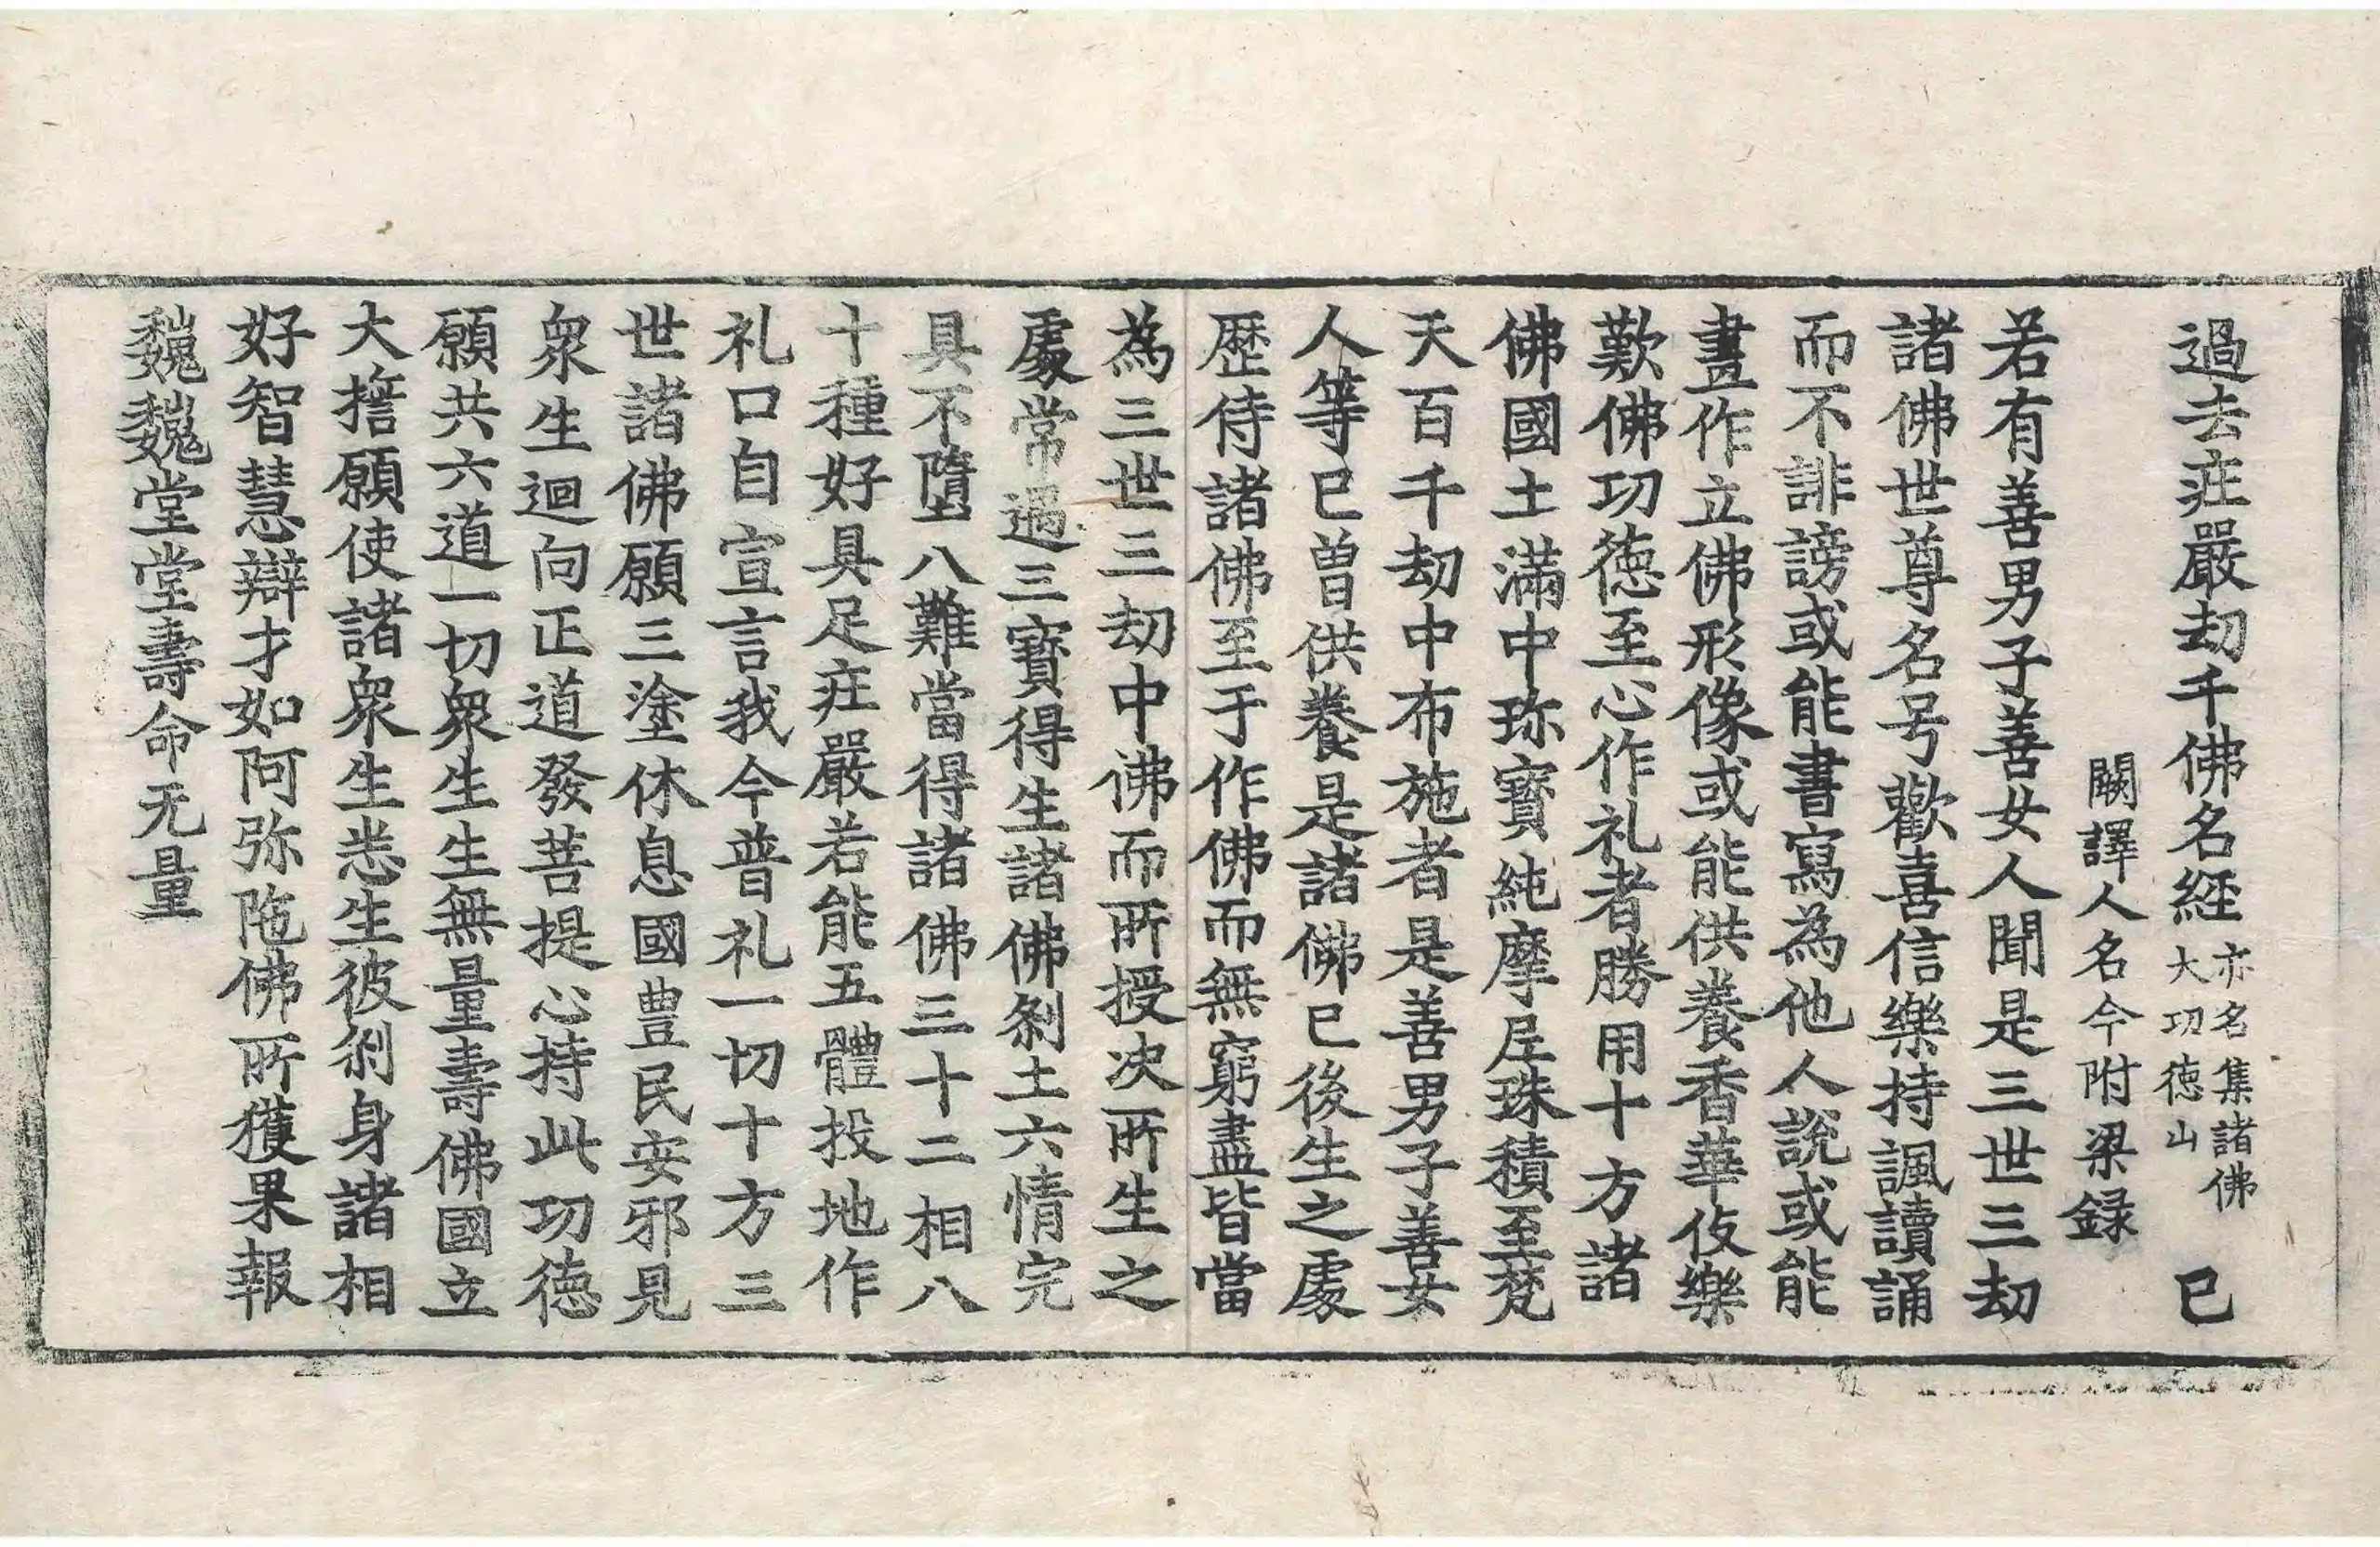 過去莊嚴劫千佛名経 亦名集諸佛大功徳山 巳
闕譯人名今附梁録
若有善男子善女人聞是三世三劫
諸佛世尊名号歡喜信樂持諷讀誦
而不誹謗或能書寫為他人說或能
畫作立佛形像或能供養香華伎樂
歎佛功徳至心作礼者勝用十方諸
佛國土滿中珎寶純摩尼珠積至梵
天百千劫中布施者是善男子善女
人等已曽供養是諸佛已後生之處
歴侍諸佛至于作佛而無窮盡皆當
為三世三劫中佛而所授决所生之
處常過三寶得生諸佛刹土六情完
具不墮八難當得諸佛三十二相八
十種好具足莊嚴若能五體投地作
礼口自宣言我今普礼一切十方三
世諸佛願三塗休息國豊民安邪見
衆生迴向正道發菩提心持此功徳
願共六道一切衆生生無量壽佛國立
大擔願使諸衆生悉生彼刹身諸相
好智慧辯才如阿弥陁佛所獲果報
巍巍堂堂壽命无量